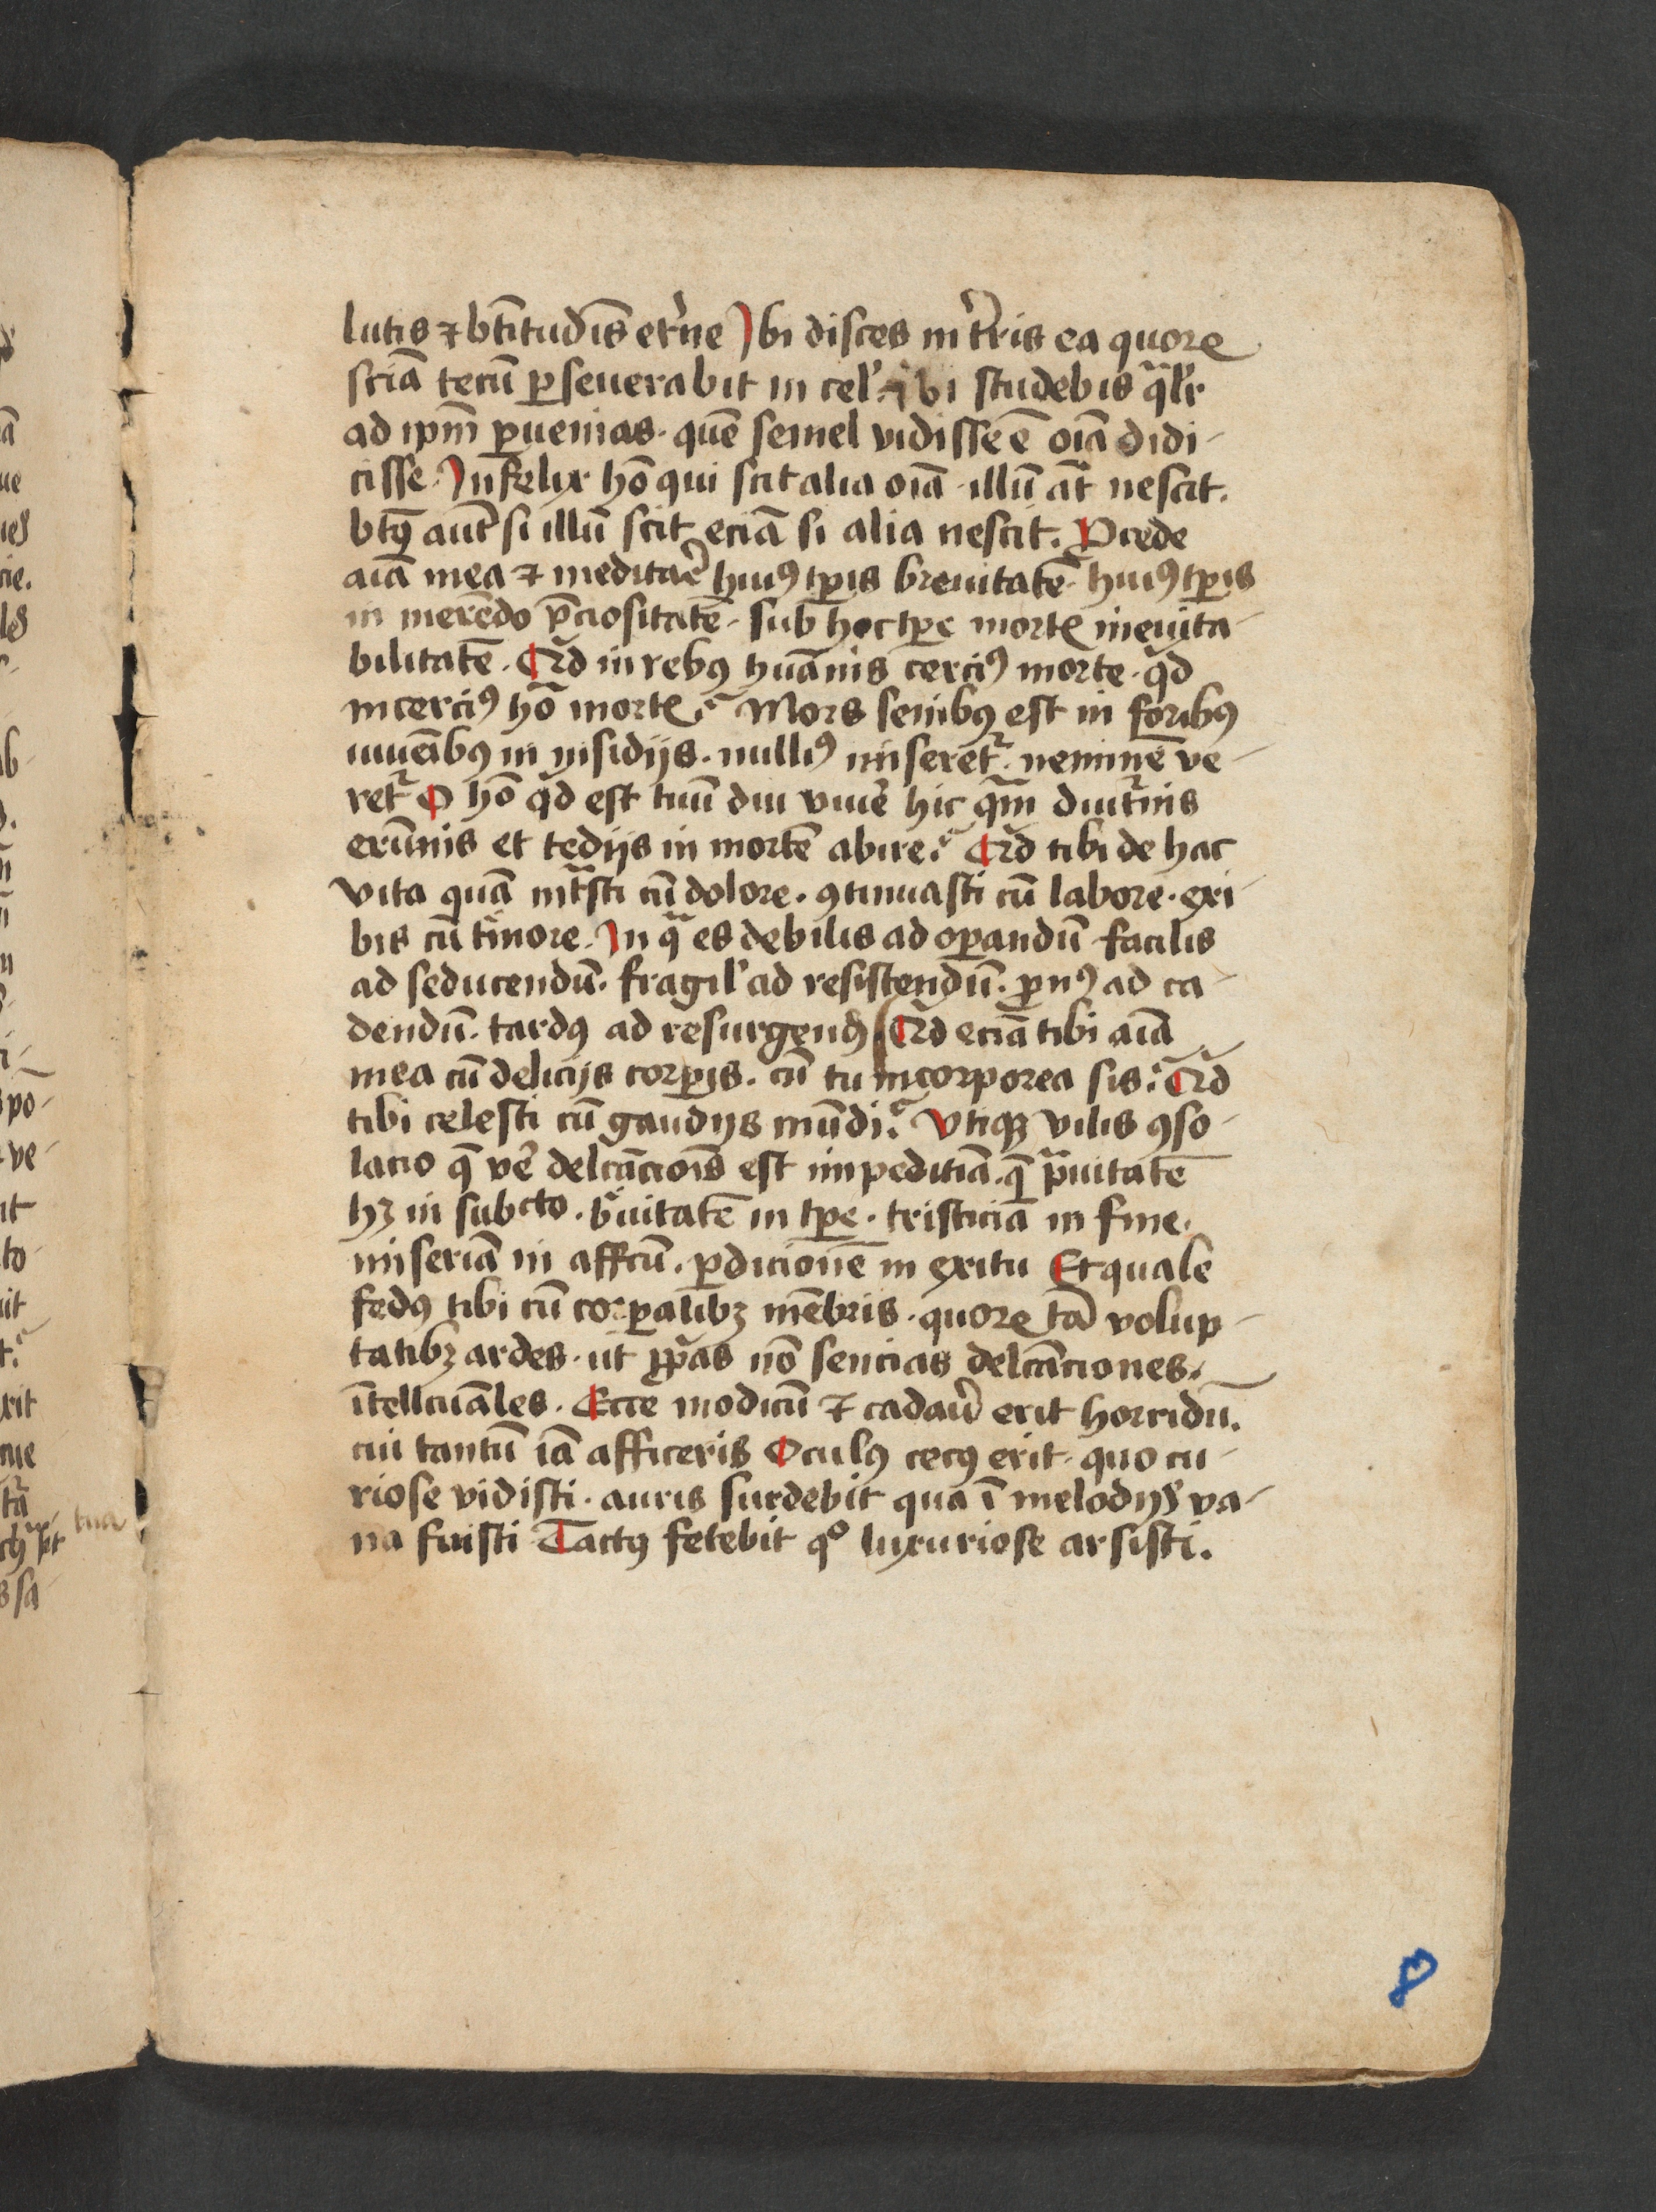 lutis ⁊ btītudīs et͛ne Ibi disces in t͛ris ea quoꝝ
sciā tecū ꝑseuerabit in cel᷒ ibi studebis qͣlr͛
ad ipm̄ ꝑuenias · quē semel vidisse ē oīa didi-
cisse · Infelix hō qui scit alia oīa · illū āt nescit.
btꝰ aūt si illū scit eciā si alia nescit. Ꝓcede
aīa mea ⁊ meditar͛ huiꝰ tꝑis breuitatē huiꝰ tꝑis
in merēdo p̄ciositatē · sub hoc tꝑe mortꝭ ineuita-
bilitatē · Qͥd in rebꝰ hūanis cerciꝰ morte · qͥd
incerciꝰ hō mortꝭ? Mors senibꝰ est in foribꝰ
iuuēibꝰ in insidijs · nulliꝰ miseret᷑ · neminē ve-
ret᷑ O hō qͥd est tuū diu viuer͛ hic qͣm diut᷑nis
erūnis et tedijs in mortē abire? Qͥd tibi de hac
vita quā intͣsti cū dolore · ꝯtinuasti cū labore · exi-
bis cū timore · In qͣ es debilis ad oꝑandū facilis
ad seducendū · fragil᷒ ad resistendū · ꝓnꝰ ad ca-
dendū · tardꝰ ad resurgendū Qͥd eciā tibi aīa
mea cū delicijs corꝑis · cū tu incorporea sis? Qͥd
tibi celesti cū gaudijs mūdi? Vtiqꝫ vilis ꝯso-
lacio q̄ ver͛ delcāciōis est impeditiā · q̄ pͣuitatē
hꝫ in subcto · bͤuitatē in tꝑe · tristiciā in fine.
miseriā in affcū · ꝑdicionē in exitu Et quale
fedꝰ tibi cū corꝑalibꝫ mēbris · quoꝝ tā volup-
tatibꝫ ardes · ut ꝓp͛as nō sencias delcāciones
ītellcuāles · Ecce modicū ⁊ cadau͛ erit horridū.
cui tantū iā afficeris Oculꝰ cecꝰ erit · quo cu-
riose vidisti · auris surdebit qua ī melodijs va-
na fuisti Tactꝰ fetebit qͦ luxuriose arsisti.
8